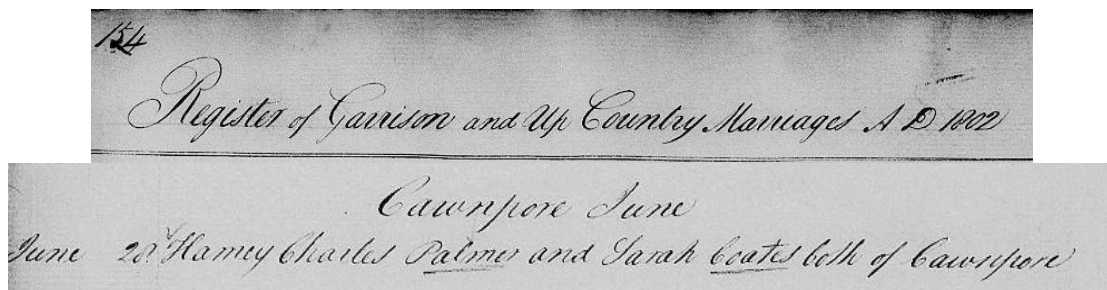 154
Register of Garrison and Up Country Marriages A D 1802
Cawnpore June
June 28 Hamey Charles Palmer and Sarah Coates both of Cawnpore